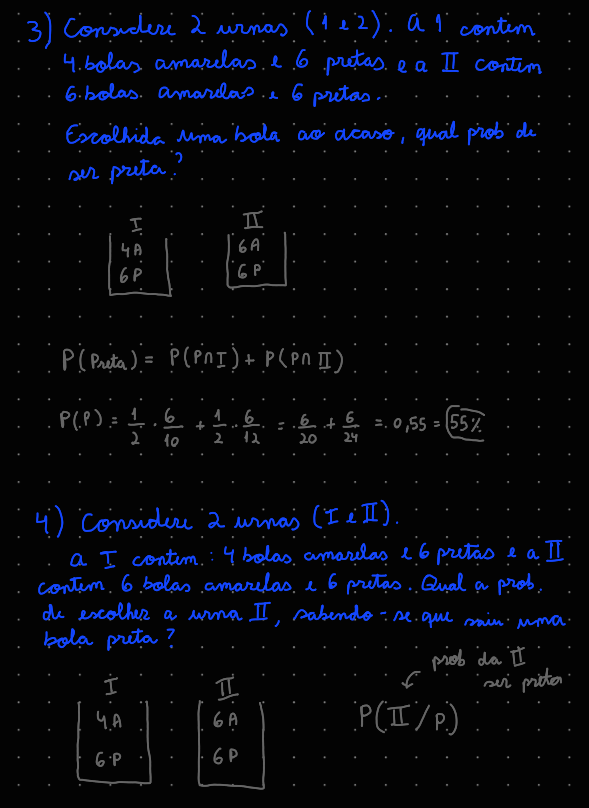 3) Considere 2 urnas (1 e 2). A 1 contem
4 bolas amarelas e 6 pretas e a II contem
6 bolas amarelas e 6 pretas.
Escolhida uma bola ao acaso, qual prob de
ser preta?
I II
4A 6A
6P 6P
P(Preta) = P(P∩I) + P(P∩II)
P(P) = 1/2 · 6/10 + 1/2 · 6/12 = 6/20 + 6/24 = 0,55 = 55%
4) Considere 2 urnas (I e II).
A I contem : 4 bolas amarelas e 6 pretas e a II
contem 6 bolas amarelas e 6 pretas. Qual a prob.
de escolher a urna II, sabendo-se que saiu uma
bola preta?
prob da II
ser preta
I II
4A 6A P(II/P)
6P 6P